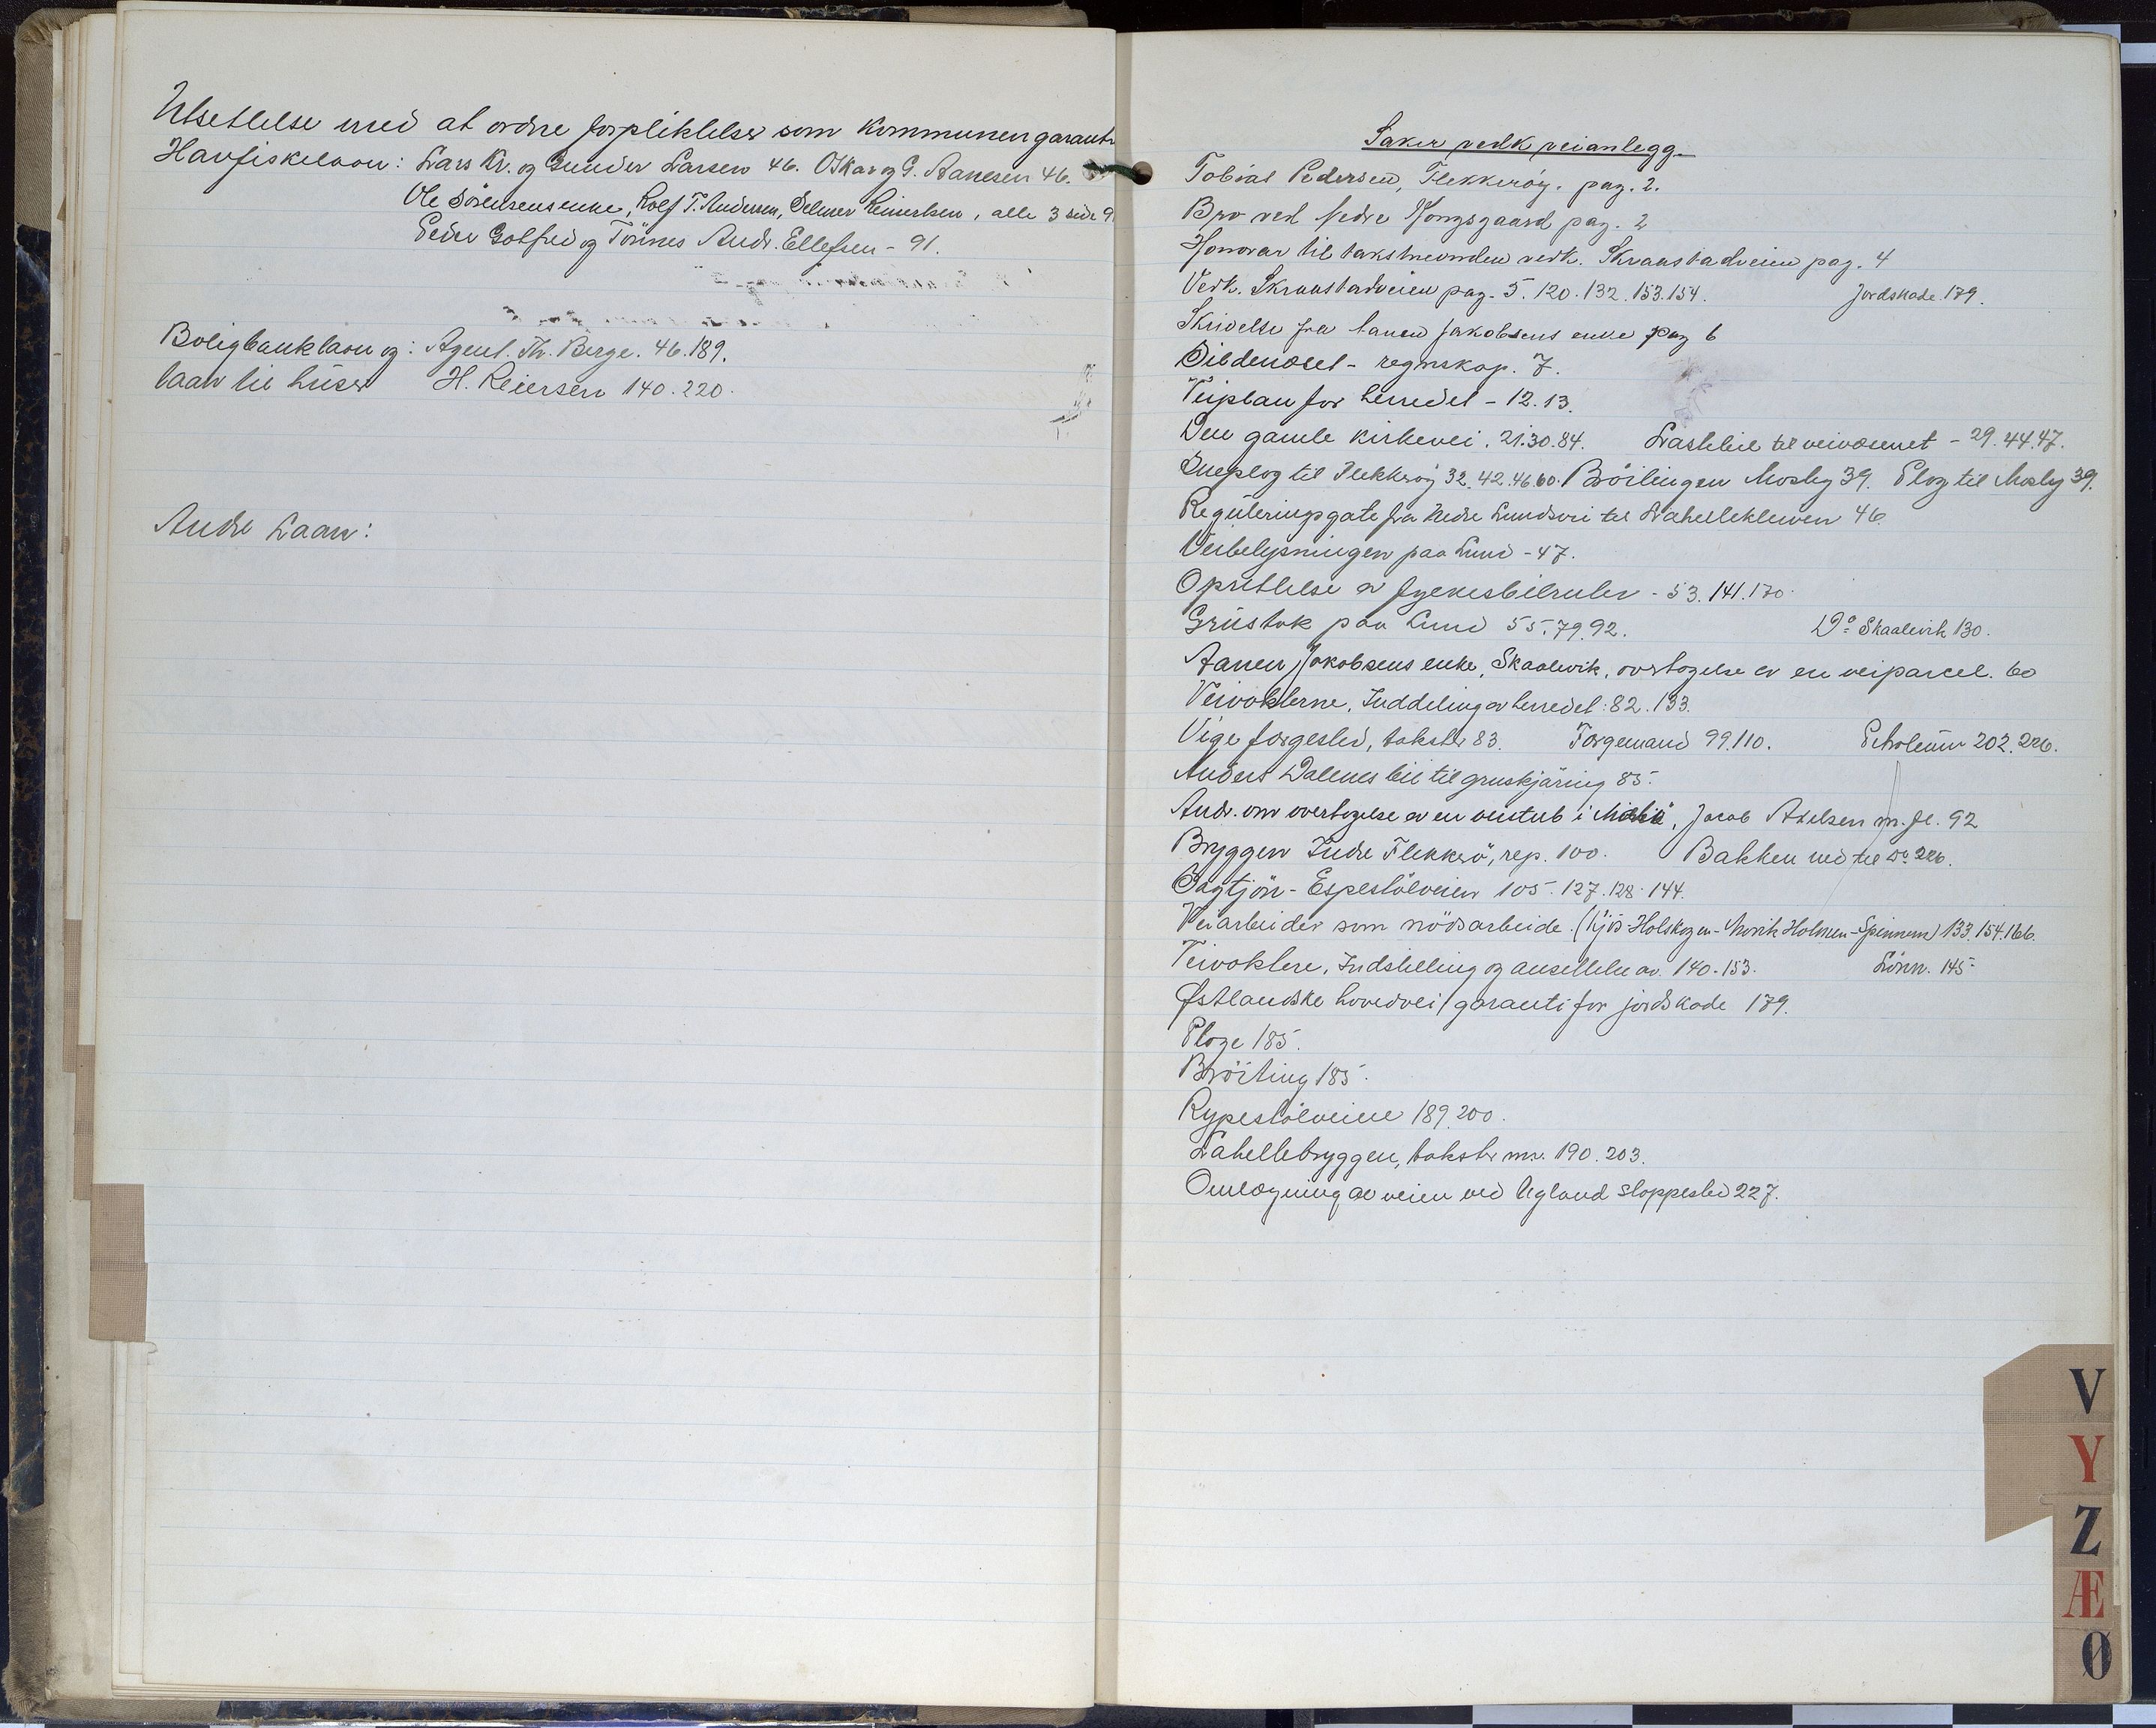 Utsettelse med at ordne forpliktelser som kommunen garant
Havfiskelaan: Lars Kr. og Gunder Larsen 46. Oskar og G. Aanesen 46.
Ole Sörensens enke, Rolf T. Andersen, Selmer Reinertsen, alle 3 side 9
Peder Gotfred og Tönnes Andr. Ellefsen - 91.
Boligbanklaan og: Agent. Th. Berge. 46.189.
laan til huser H. Reiersen 140.220.
Andre Laan:
Saker vedk veianlegg
Tobias Pedersen, Flekkeröy. pag. 2.
Bro ved Nedre Kongsgaard pag. 2
Honorar til takstmennden vedk. Skraastadveien pag. 4
Vedk. Skraastadveien pag. 5. 120. 132. 153. 154. Jordskade. 179.
Skrivelse fra Aanen Jakobsens enke pag 6
Sildenæset - regnskap. 7.
Veiplan for herredet - 12.13.
Den gamle kirkevei. 21.30.84. Lastebil til veivæsenet - 29.44.47.
Sneplog til Flekkröy 32.42.46.60. Bröitingen Mosby 39. Plog til Mosby 39.
Reguleringsgate fra Nedre Lundsvei til Lahellekleven 46.
Veibelysningen paa Lund - 47.
Oprettelse av bilruter - 53. 141. 170.
Grustak paa Lund 55.79.92. Do Skaalevik 130.
Aanen Jakobsens enke, Skaalevik, overtagelse av en veiparcel. 60
Veivokterne. Inddeling av herredet: 82. 133.
Vige færgested, takster 83. Færgemand 99.110. Petroleum 202. 226.
Anders Dalenes bil til gruskjöring 85.
Andr. om overtagelse av en veistub i , Jacob Axelsen m. fl. 92
Bryggen Indre Flekkerö, rep. 100. Bakken ned til do 226.
Sagtjön - Espestölveien 105. 127. 128. 144.
Veiarbeider som nödsarbeide. (Kjös-Holskogen - Holmen - ) 133. 154. 166.
Veivoktere, Indstilling og ansettelse av. 140. 153. Lönn. 145.
Østlandske hovedvei / garanti for jordskade 179.
Ploge 185.
Bröiting 185.
Rypestölveien 189. 200.
Lahellebryggen, takster mv. 190. 203.
Omlægning av veien ved Ugland stoppested 227.
V
Y
Z
Æ
Ø